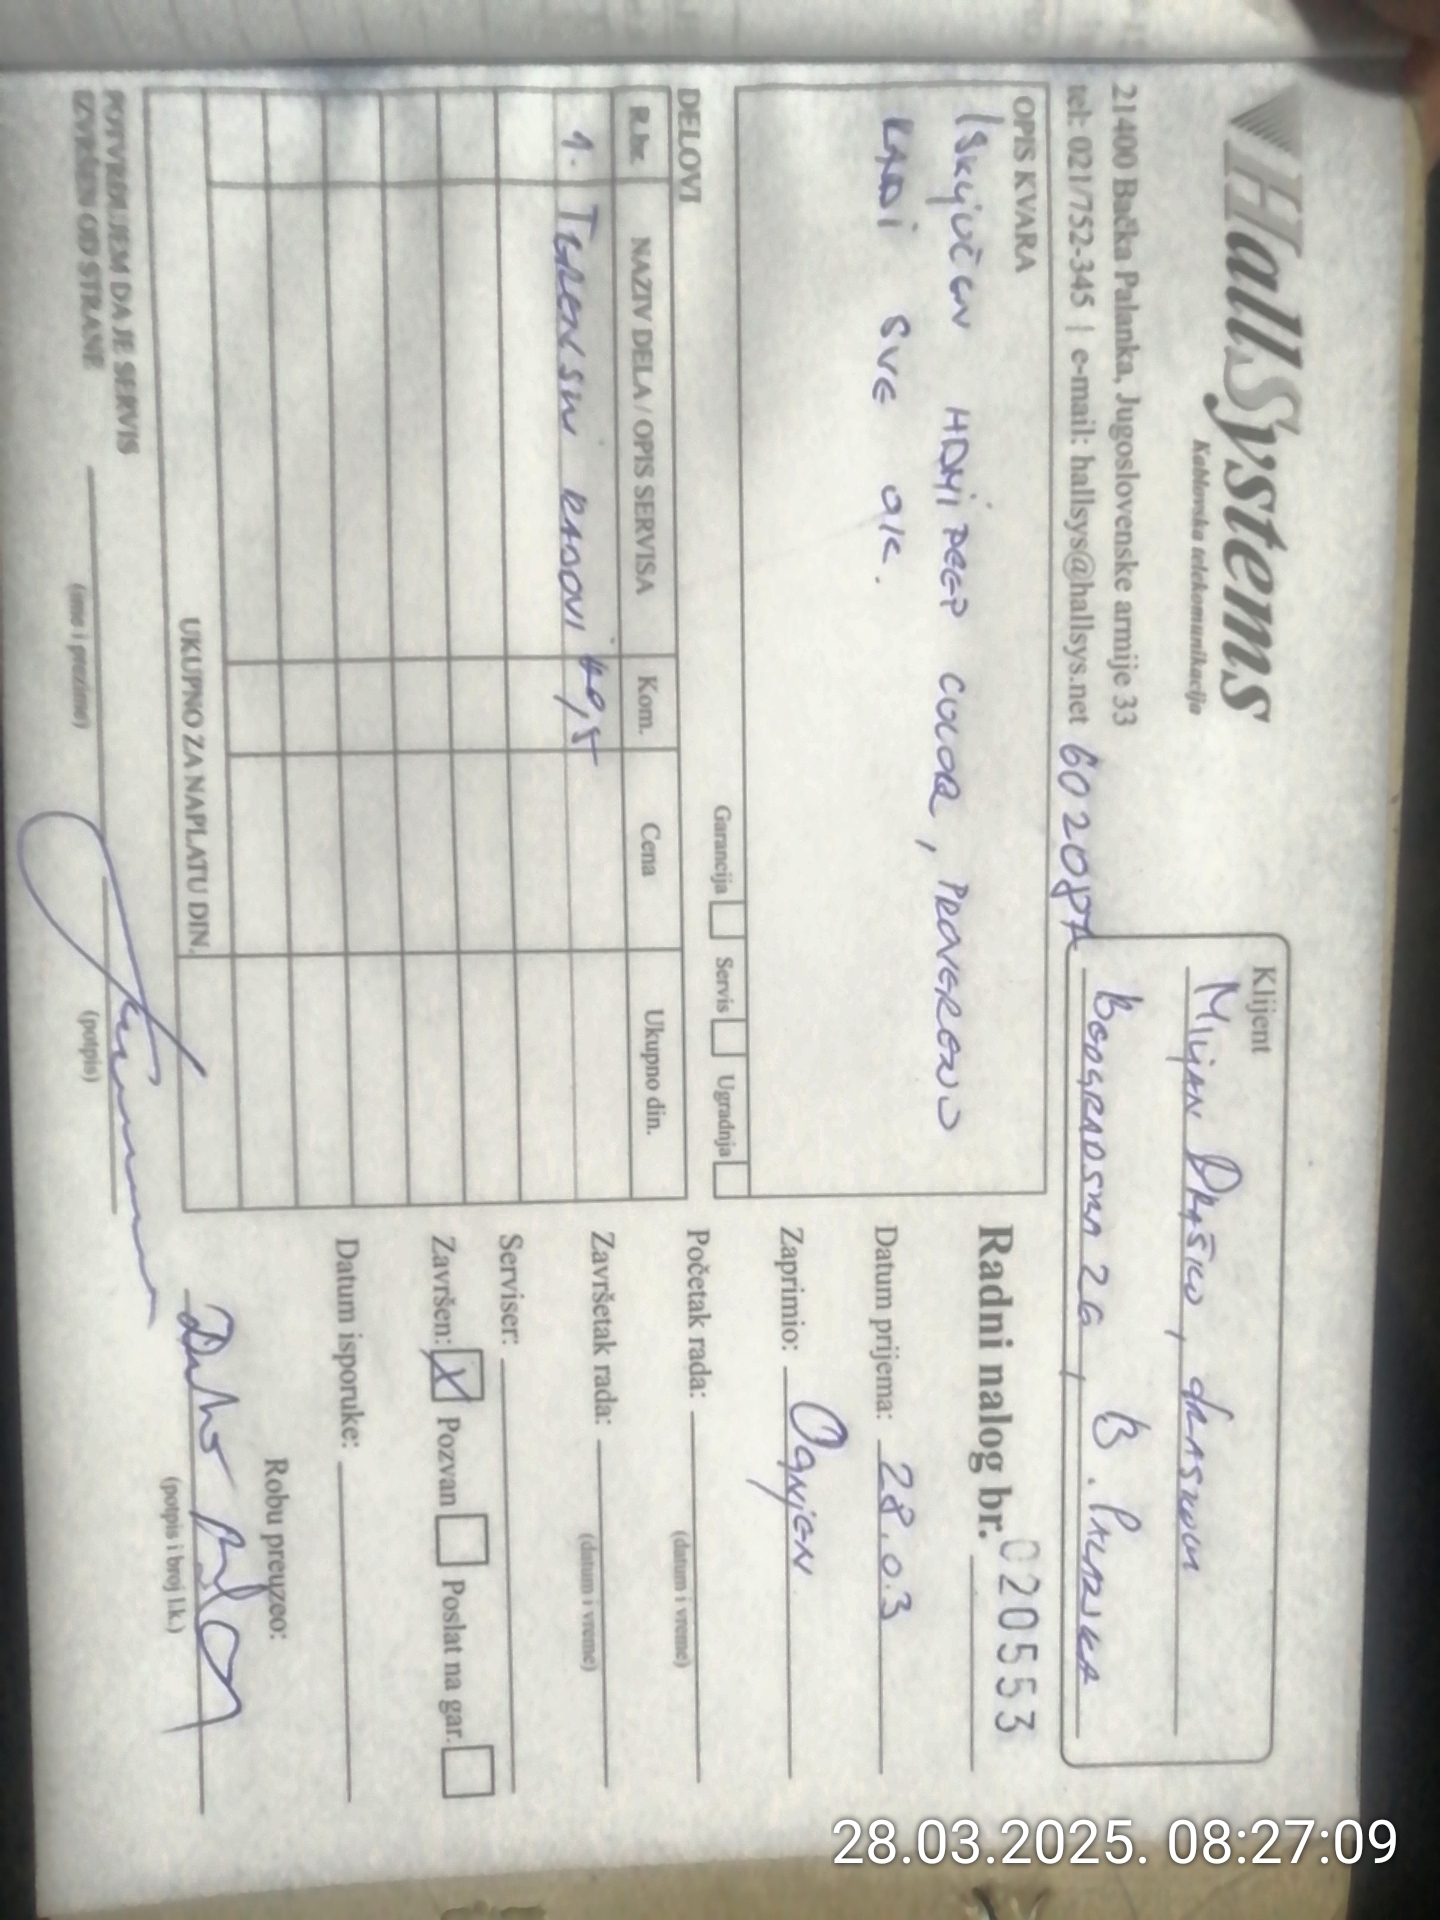 HallSystems
Kablovska telekomunikacija
21400 Bačka Palanka, Jugoslovenske armije 33
tel: 021/752-345 | e-mail: hallsys@hallsys.net
Klijent
Miljan Draško,
Beogradska 26, B. Palanka
OPIS KVARA
Isključen HDMI DEEP COLOR, PROVERENO
RADI SVE OK.
Garancija Servis Ugradnja
Radni nalog br. 020553
Datum prijema: 28.03
Zaprimio: Ognjen
Početak rada:
(datum i vreme)
Završetak rada:
(datum i vreme)
Serviser:
Završen: X Pozvan Poslat na gar.
Datum isporuke:
Robu preuzeo:
(potpis i broj l.k.)
DELOVI
R.br. NAZIV DELA / OPIS SERVISA Kom. Cena Ukupno din.
1. TERENSKI RADOVI
UKUPNO ZA NAPLATU DIN.
POTVRĐUJEM DA JE SERVIS
IZVRŠEN OD STRANE
(ime i prezime) (potpis)
28.03.2025. 08:27:09